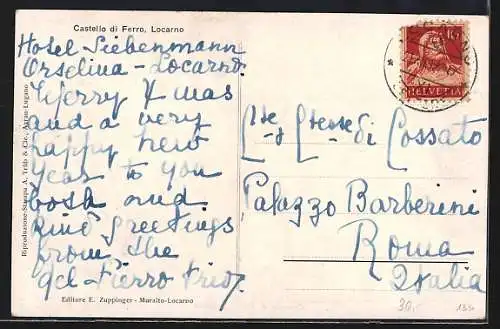 Castello di Ferro, Locarno
Hotel Siebenmann
Orselina - Locarno.
Merry X mas
and a very
happy new
year to you
both and
kind greetings
from the
Riproduzione-Stampa A. Trüb & Cie., Aarau-Lugano
Editore E. Zuppinger - Muralto-Locarno
10
HELVETIA
di Cossato
Palazzo Barberini
Roma
Italia
30.-